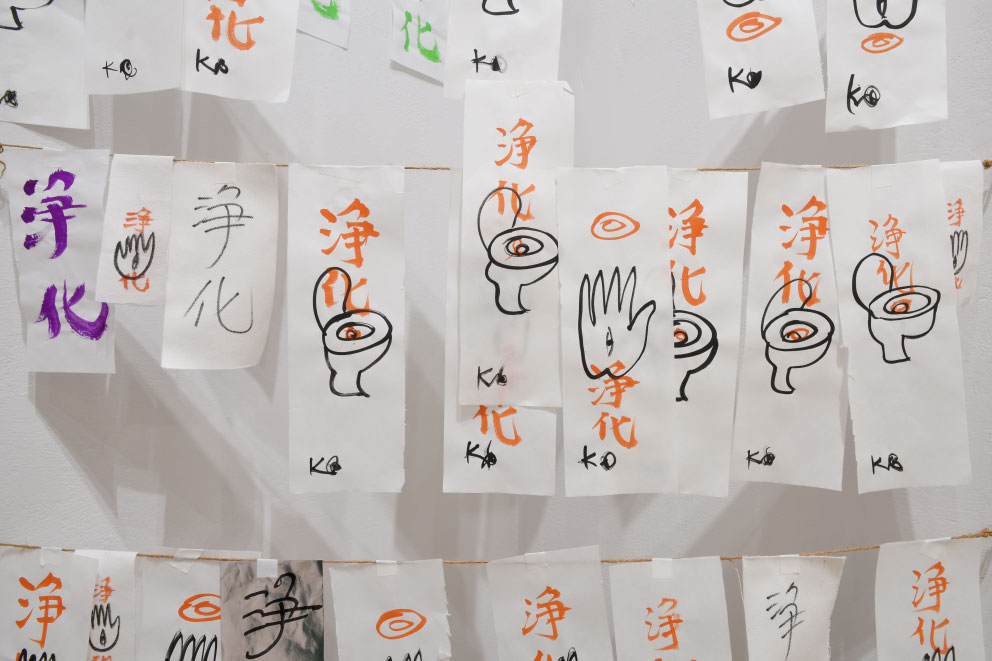 化
K
化
K
化
K
K
K
浄
化
浄
化
浄
化
浄
化
K
浄
化
K
化
K
浄
化
K
浄
化
浄
化
K
浄
化
K
浄
化
浄
浄
浄
浄
化
浄
浄
浄
化